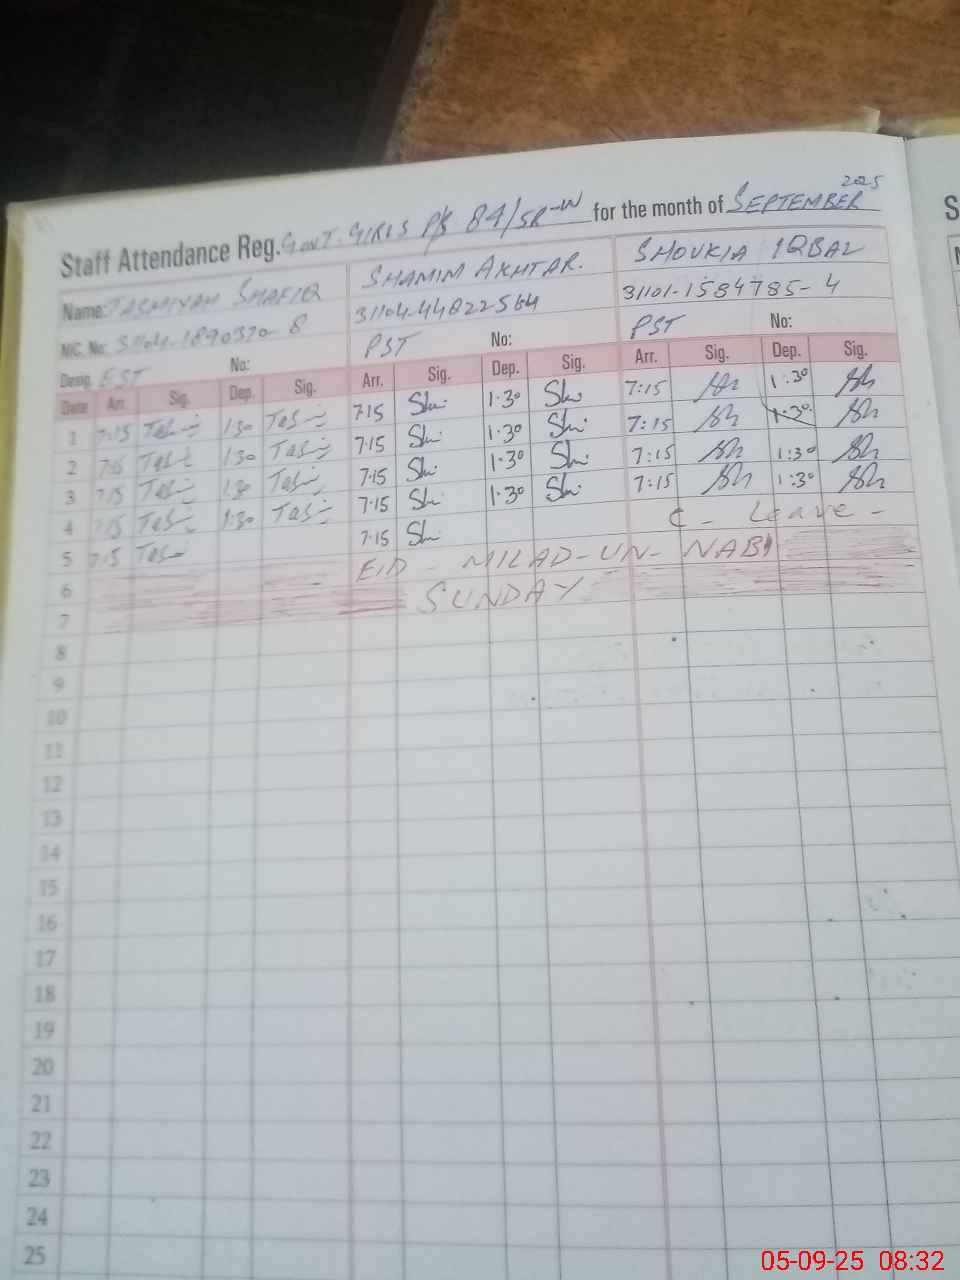 2025
Staff Attendance Reg. GOVT. GIRLS P/S 84/SR-W for the month of SEPTEMBER
Name: TASMIYAH SHAFIQ SHAMIM AKHTAR. SHOUKIA IQBAL
NIC. No: 31104-1890370-8 31104-44822564 31101-1584785-4
Desig. EST No: PST No: PST No:
Date Arr. Sig. Dep. Sig. Arr. Sig. Dep. Sig. Arr. Sig. Dep. Sig.
1 7:15 Tas 1:30 Tas 7:15 Sh 1:30 Sh 7:15 Sh 1:30 Sh
2 7:15 Tas 1:30 Tas 7:15 Sh 1:30 Sh 7:15 Sh 1:30 Sh
3 7:15 Tas 1:30 Tas 7:15 Sh 1:30 Sh 7:15 Sh 1:30 Sh
4 7:15 Tas 1:30 Tas 7:15 Sh 1:30 Sh 7:15 Sh 1:30 Sh
5 7:15 Tas 7:15 Sh C - Leave -
6 EID - MILAD-UN-NABI
7 SUNDAY
8
9
10
11
12
13
14
15
16
17
18
19
20
21
22
23
24
25
05-09-25 08:32